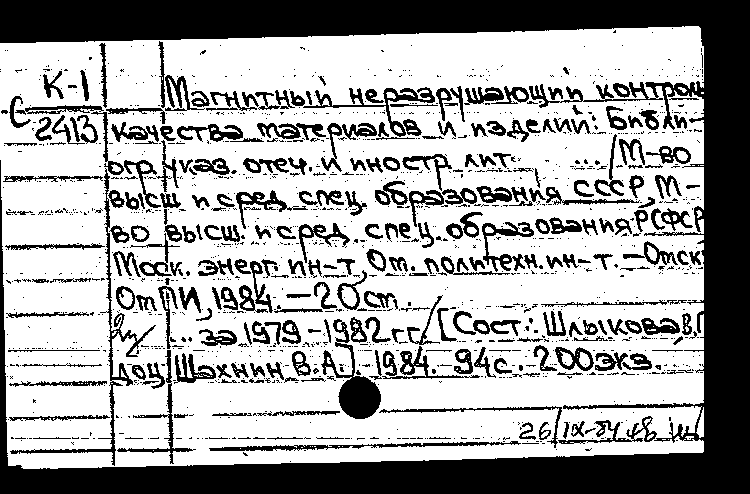 К-1 Магнитный неразрушающий контроль
С 2413 качества материалов и изделий: Библи-
огр. указ. отеч. и иностр. лит. ... / М-во
высш. и сред. спец. образования СССР, М-
во высш. и сред. спец. образования РСФСР
Моск. энерг. ин-т, Ом. политехн. ин-т. - Омск
ОмПИ, 1984. - 20 см.
... за 1979-1982 гг. / [Сост.: Шлыкова В.Г
доц. Шахнин В.А.]. 1984. 94 с. 200 экз.
26/IX-84